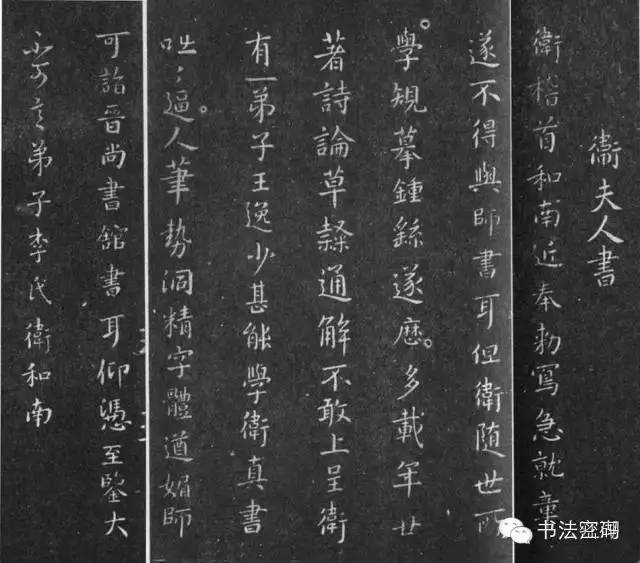 衛夫人書
衛稽首和南近奉勅寫急就章
遂不得與師書耳但衛隨世所
學規摹鍾繇遂歷多載年廿
著詩論草隸通解不敢上呈衛
有一弟子王逸少甚能學衛真書
咄〻逼人筆勢洞精字體遒媚師
可詣晉尚書館書耳仰憑至鑒大
不可言弟子李氏衛和南
书法密